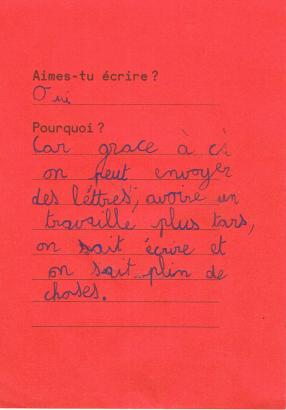 Aimes-tu écrire ?
Oui
Pourquoi ?
Car grace à ci
on peut envoyer
des léttres, avoire un
travaille plus tars,
on sait écrire et
on sait plin de
choses.